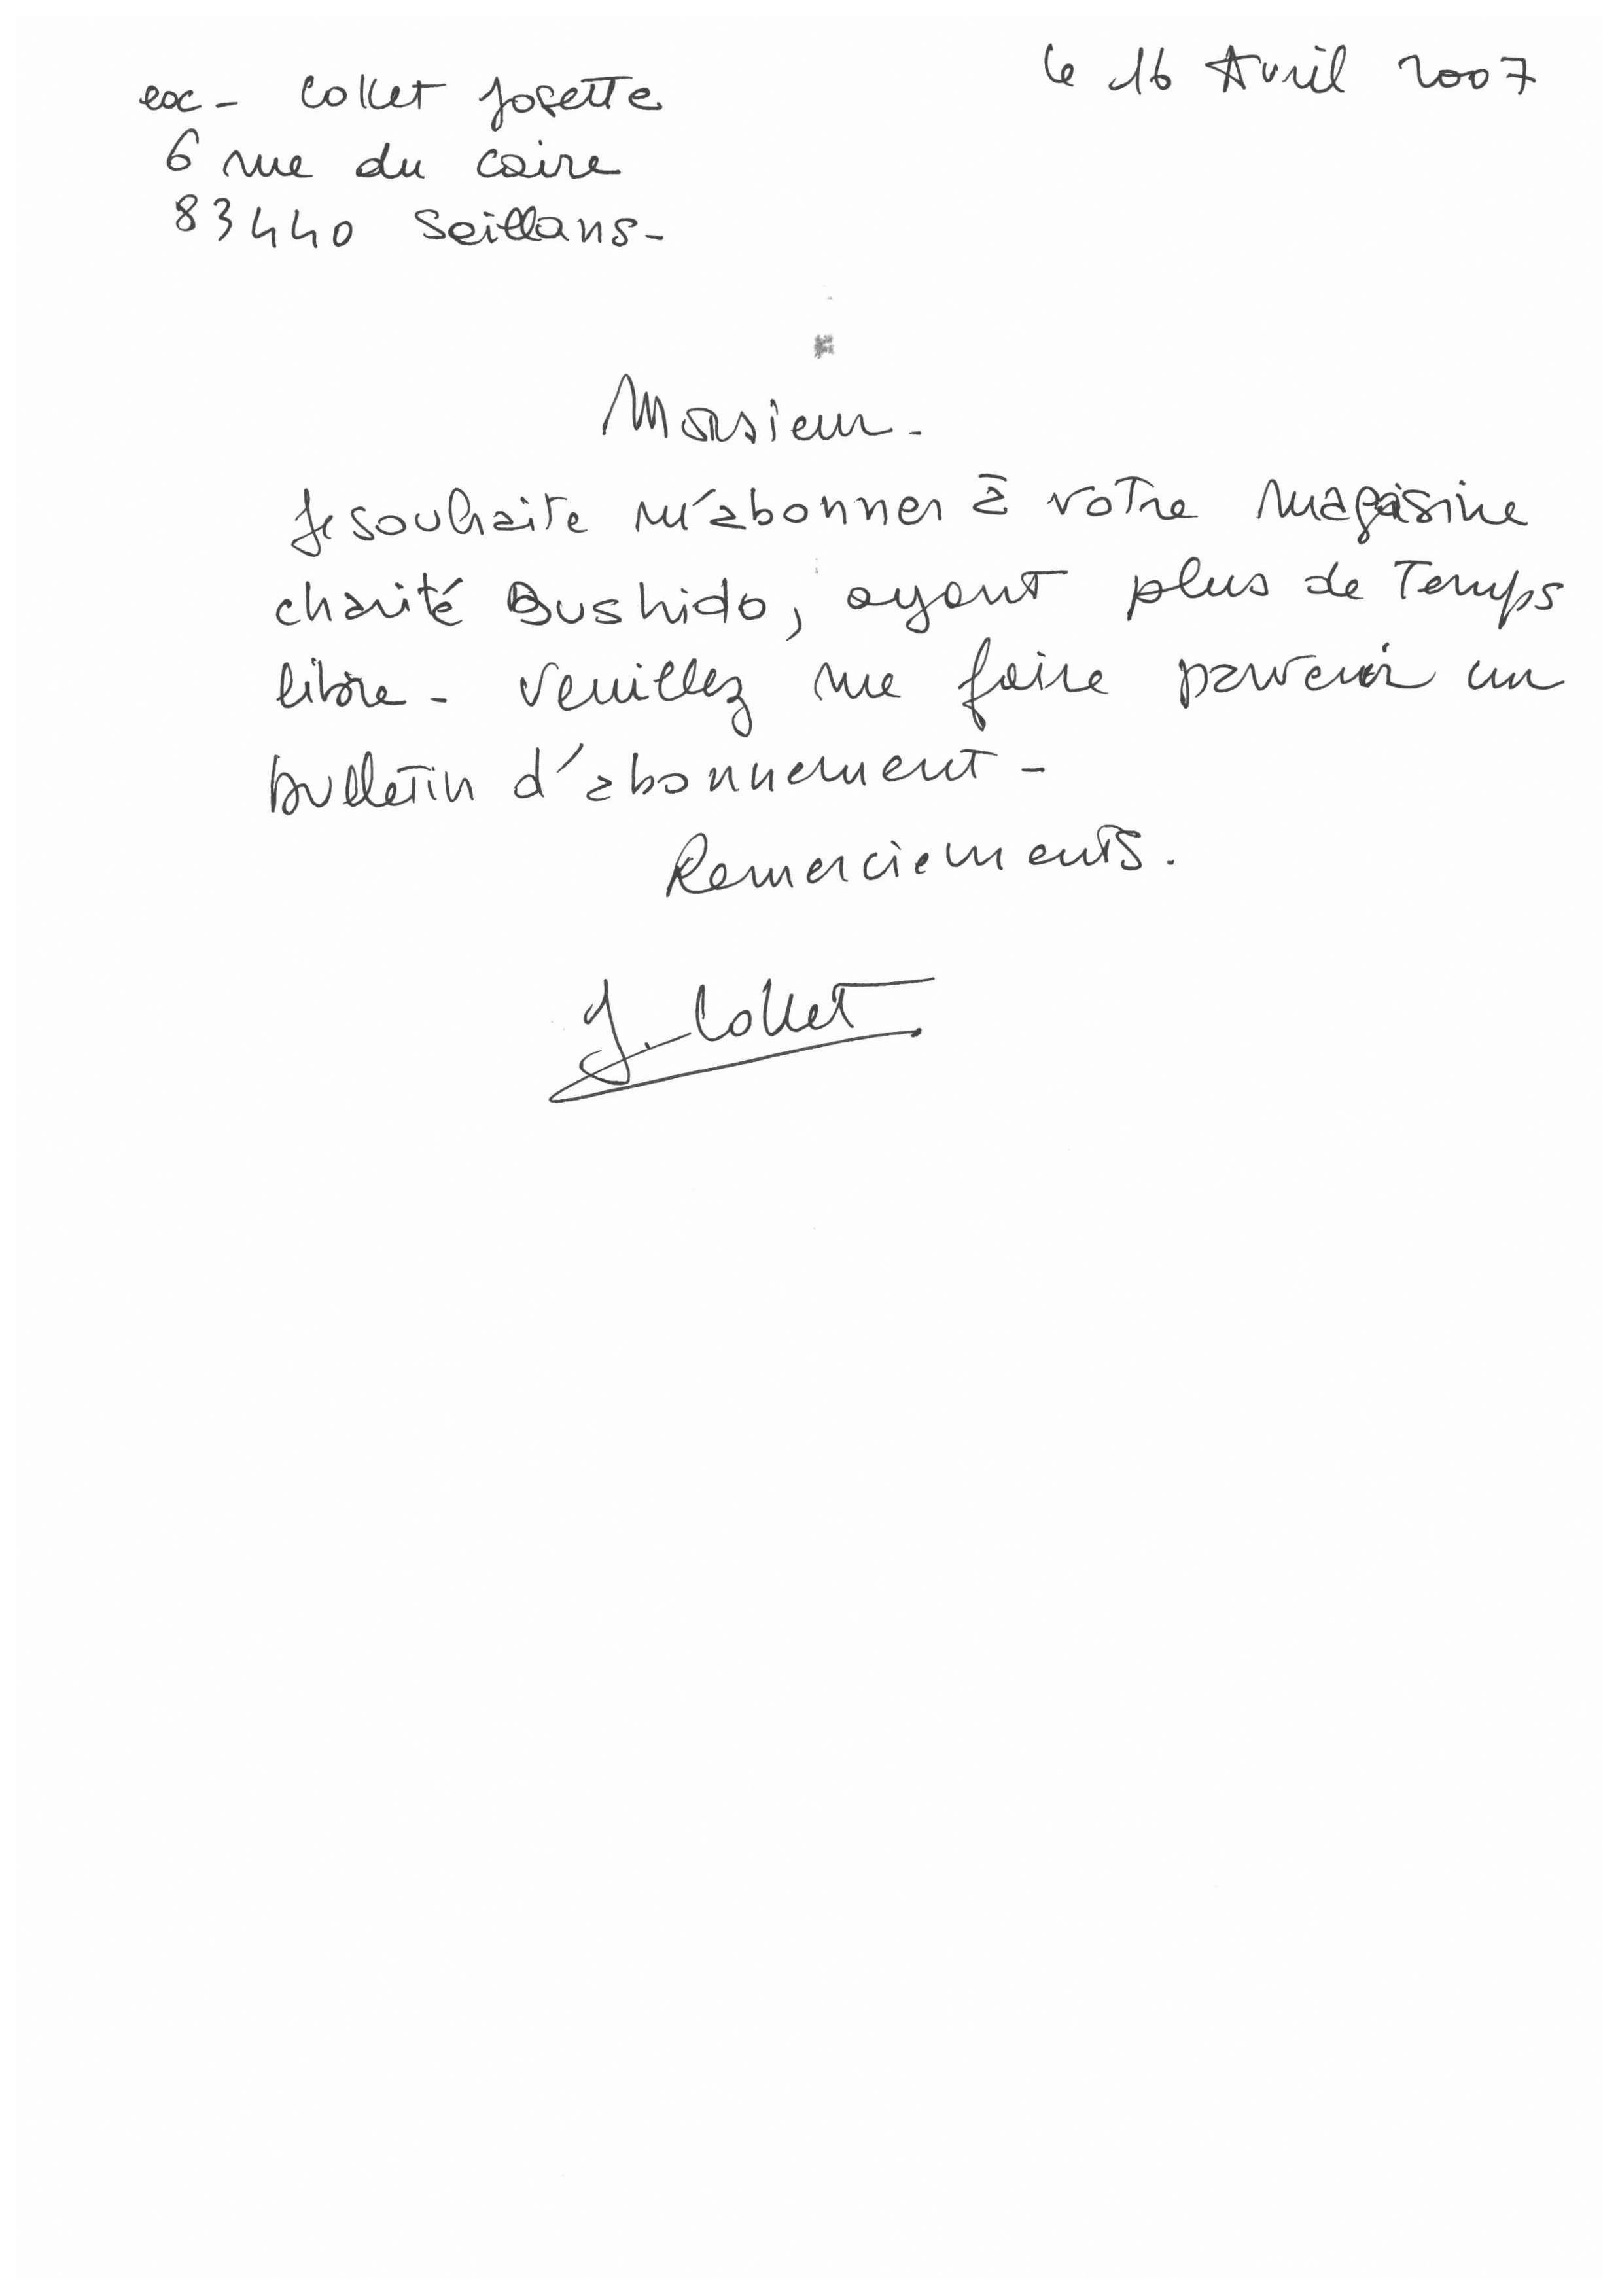 exc - Collet Josette
le 16 Avril 2007
6 rue du Caire
83440 Seillans -
Monsieur -
Je souhaite m'abonner à votre magasine
charité Bushido, ayant plus de Temps
libre - veuillez me faire parvenir un
bulletin d'abonnement -
Remerciements.
J. Collet